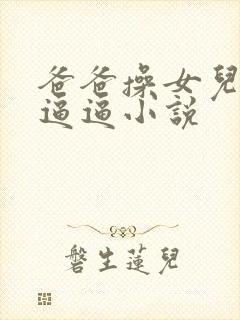 爸爸操女兒
逼逼小說
磐生蓮兒